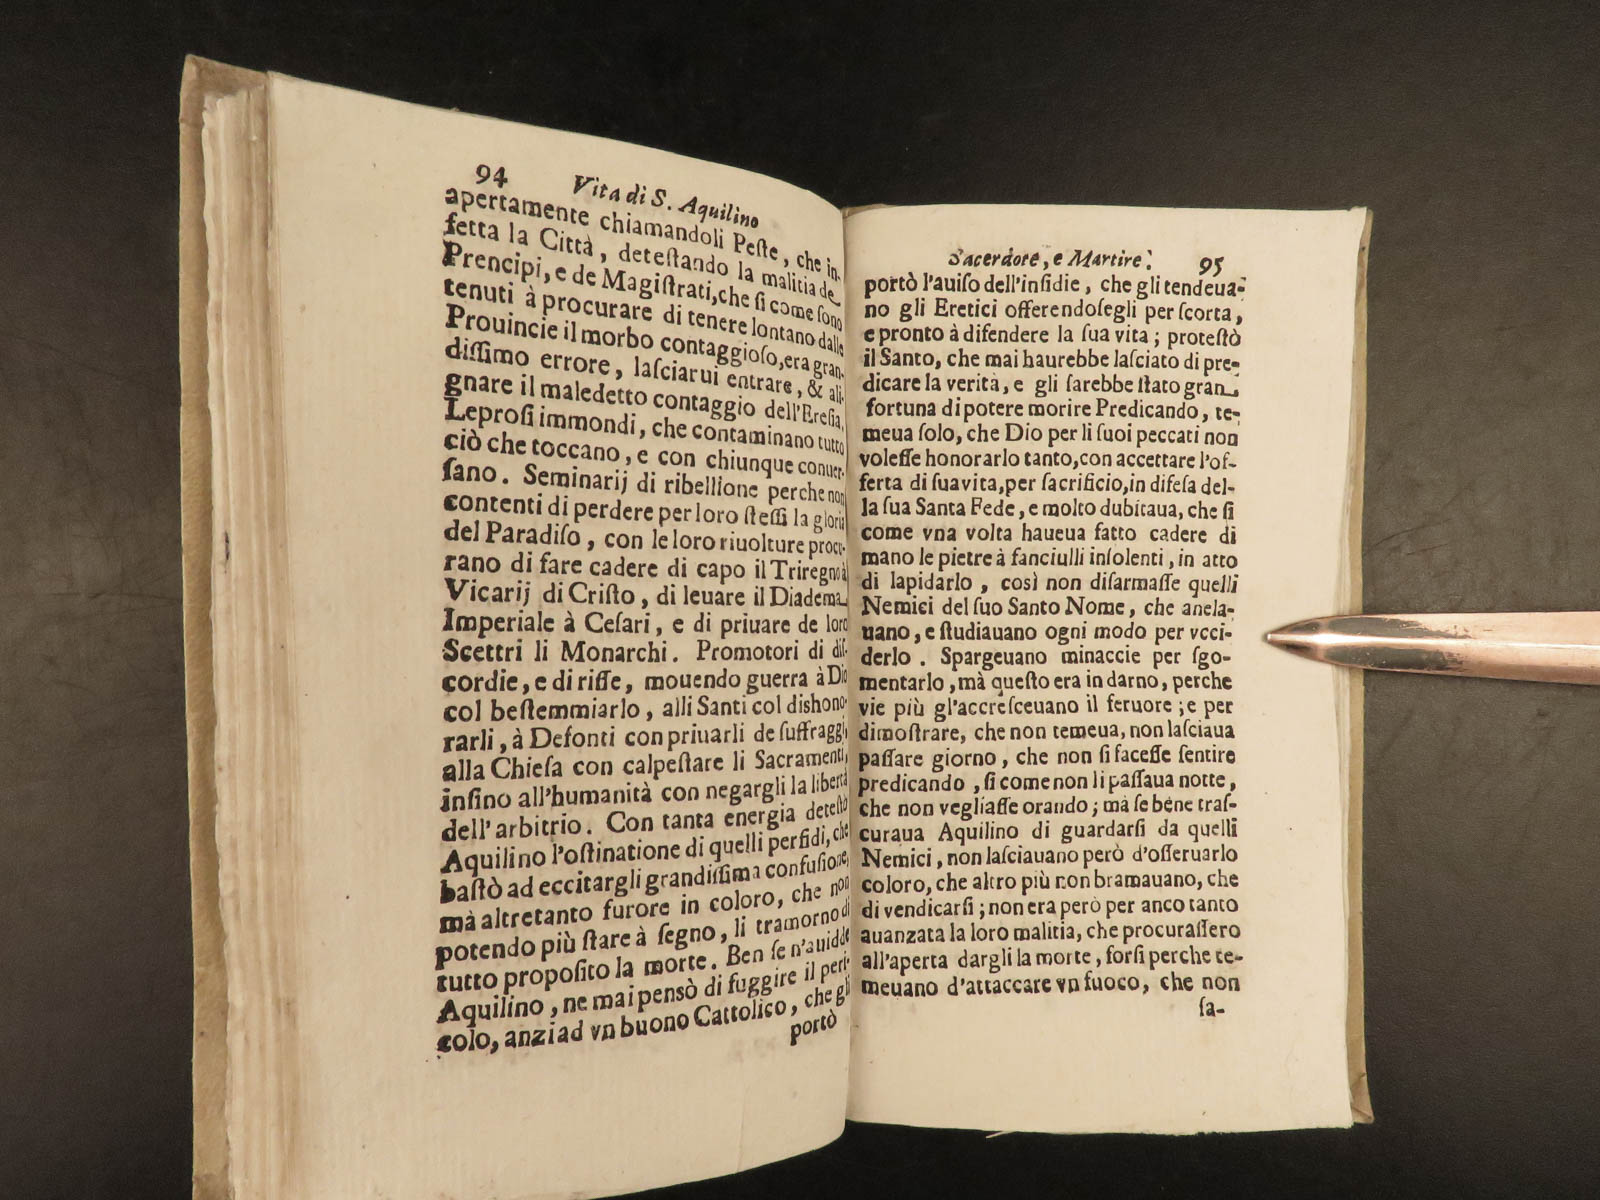 94 Vita di S. Aquilino
apertamente chiamandoli Peſte, che in-
fetta la Città, deteſtando la malitia de
Prencipi, e de Magiſtrati, che ſi come ſono
tenuti à procurare di tenere lontano dalle
Prouincie il morbo contaggioſo, era gran-
diſſimo errore, laſciarui entrare, & ali-
gnare il maledetto contaggio dell'Ereſia,
Leproſi immondi, che contaminano tutto
ciò che toccano, e con chiunque conuer-
ſano. Seminarij di ribellione perche non
contenti di perdere per loro ſteſſi la gloria
del Paradiſo, con le loro riuolture procu-
rano di fare cadere di capo il Triregno à
Vicarij di Criſto, di leuare il Diadema
Imperiale à Ceſari, e di priuare de loro
Scettri li Monarchi. Promotori di diſ-
cordie, e di riſſe, mouendo guerra à Dio
col beſtemmiarlo, alli Santi col dishono-
rarli, à Defonti con priuarli de ſuffraggi,
alla Chieſa con calpeſtare li Sacramenti,
inſino all'humanità con negargli la libertà
dell'arbitrio. Con tanta energia deteſtò
Aquilino l'oſtinatione di quelli perfidi, che
baſtò ad eccitargli grandiſſima confuſione,
mà altretanto furore in coloro, che non
potendo più ſtare à ſegno, li tramorno di
tutto propoſito la morte. Ben ſe n'auidde
Aquilino, ne mai pensò di fuggire il peri-
colo, anzi ad vn buono Cattolico, che gli
portò
Sacerdote, e Martire. 95
portò l'auiſo dell'inſidie, che gli tendeua-
no gli Eretici offerendoſegli per ſcorta,
e pronto à difendere la ſua vita; proteſtò
il Santo, che mai haurebbe laſciato di pre-
dicare la verità, e gli ſarebbe ſtato gran
fortuna di potere morire Predicando, te-
meua ſolo, che Dio per li ſuoi peccati non
voleſſe honorarlo tanto, con accettare l'of-
ferta di ſua vita, per ſacrificio, in difeſa del-
la ſua Santa Fede, e molto dubitaua, che ſi
come vna volta haueua fatto cadere di
mano le pietre à fanciulli inſolenti, in atto
di lapidarlo, così non diſarmaſſe quelli
Nemici del ſuo Santo Nome, che anela-
uano, e ſtudiauano ogni modo per vcci-
derlo. Spargeuano minaccie per ſgo-
mentarlo, mà queſto era in darno, perche
vie più gl'accreſceuano il feruore; e per
dimoſtrare, che non temeua, non laſciaua
paſſare giorno, che non ſi faceſſe ſentire
predicando, ſi come non li paſſaua notte,
che non vegliaſſe orando; mà ſe bene traſ-
curaua Aquilino di guardarſi da quelli
Nemici, non laſciauano però d'oſſeruarlo
coloro, che altro più non bramauano, che
di vendicarſi; non era però per anco tanto
auanzata la loro malitia, che procuraſſero
all'aperta dargli la morte, forſi perche te-
meuano d'attaccare vn fuoco, che non
ſa-